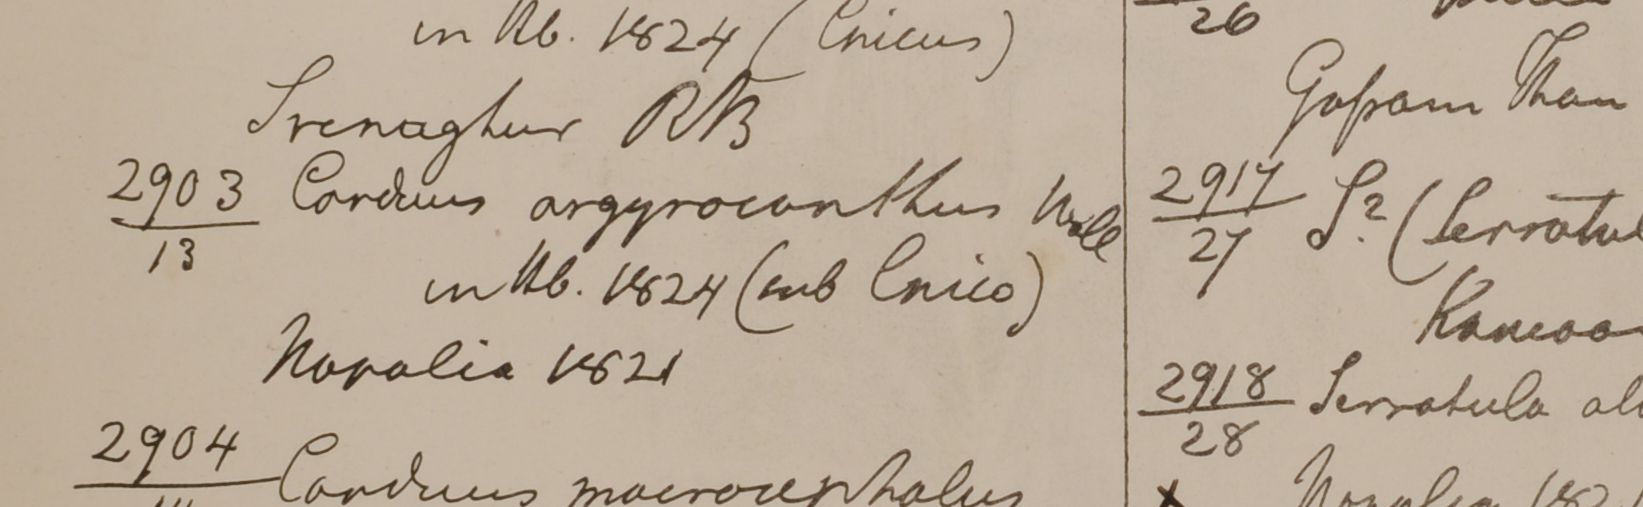 in Hb. 1824 (Cnicus)
Srenaghur RB
2903 Carduus argyrocanthus Wall
13
in Hb. 1824 (sub Cnico)
Napalia 1821
2904 Carduus macrocephalus
26
Than
2917 S? (Serratul
27
2918 Serratula al
28
x Napalia 182